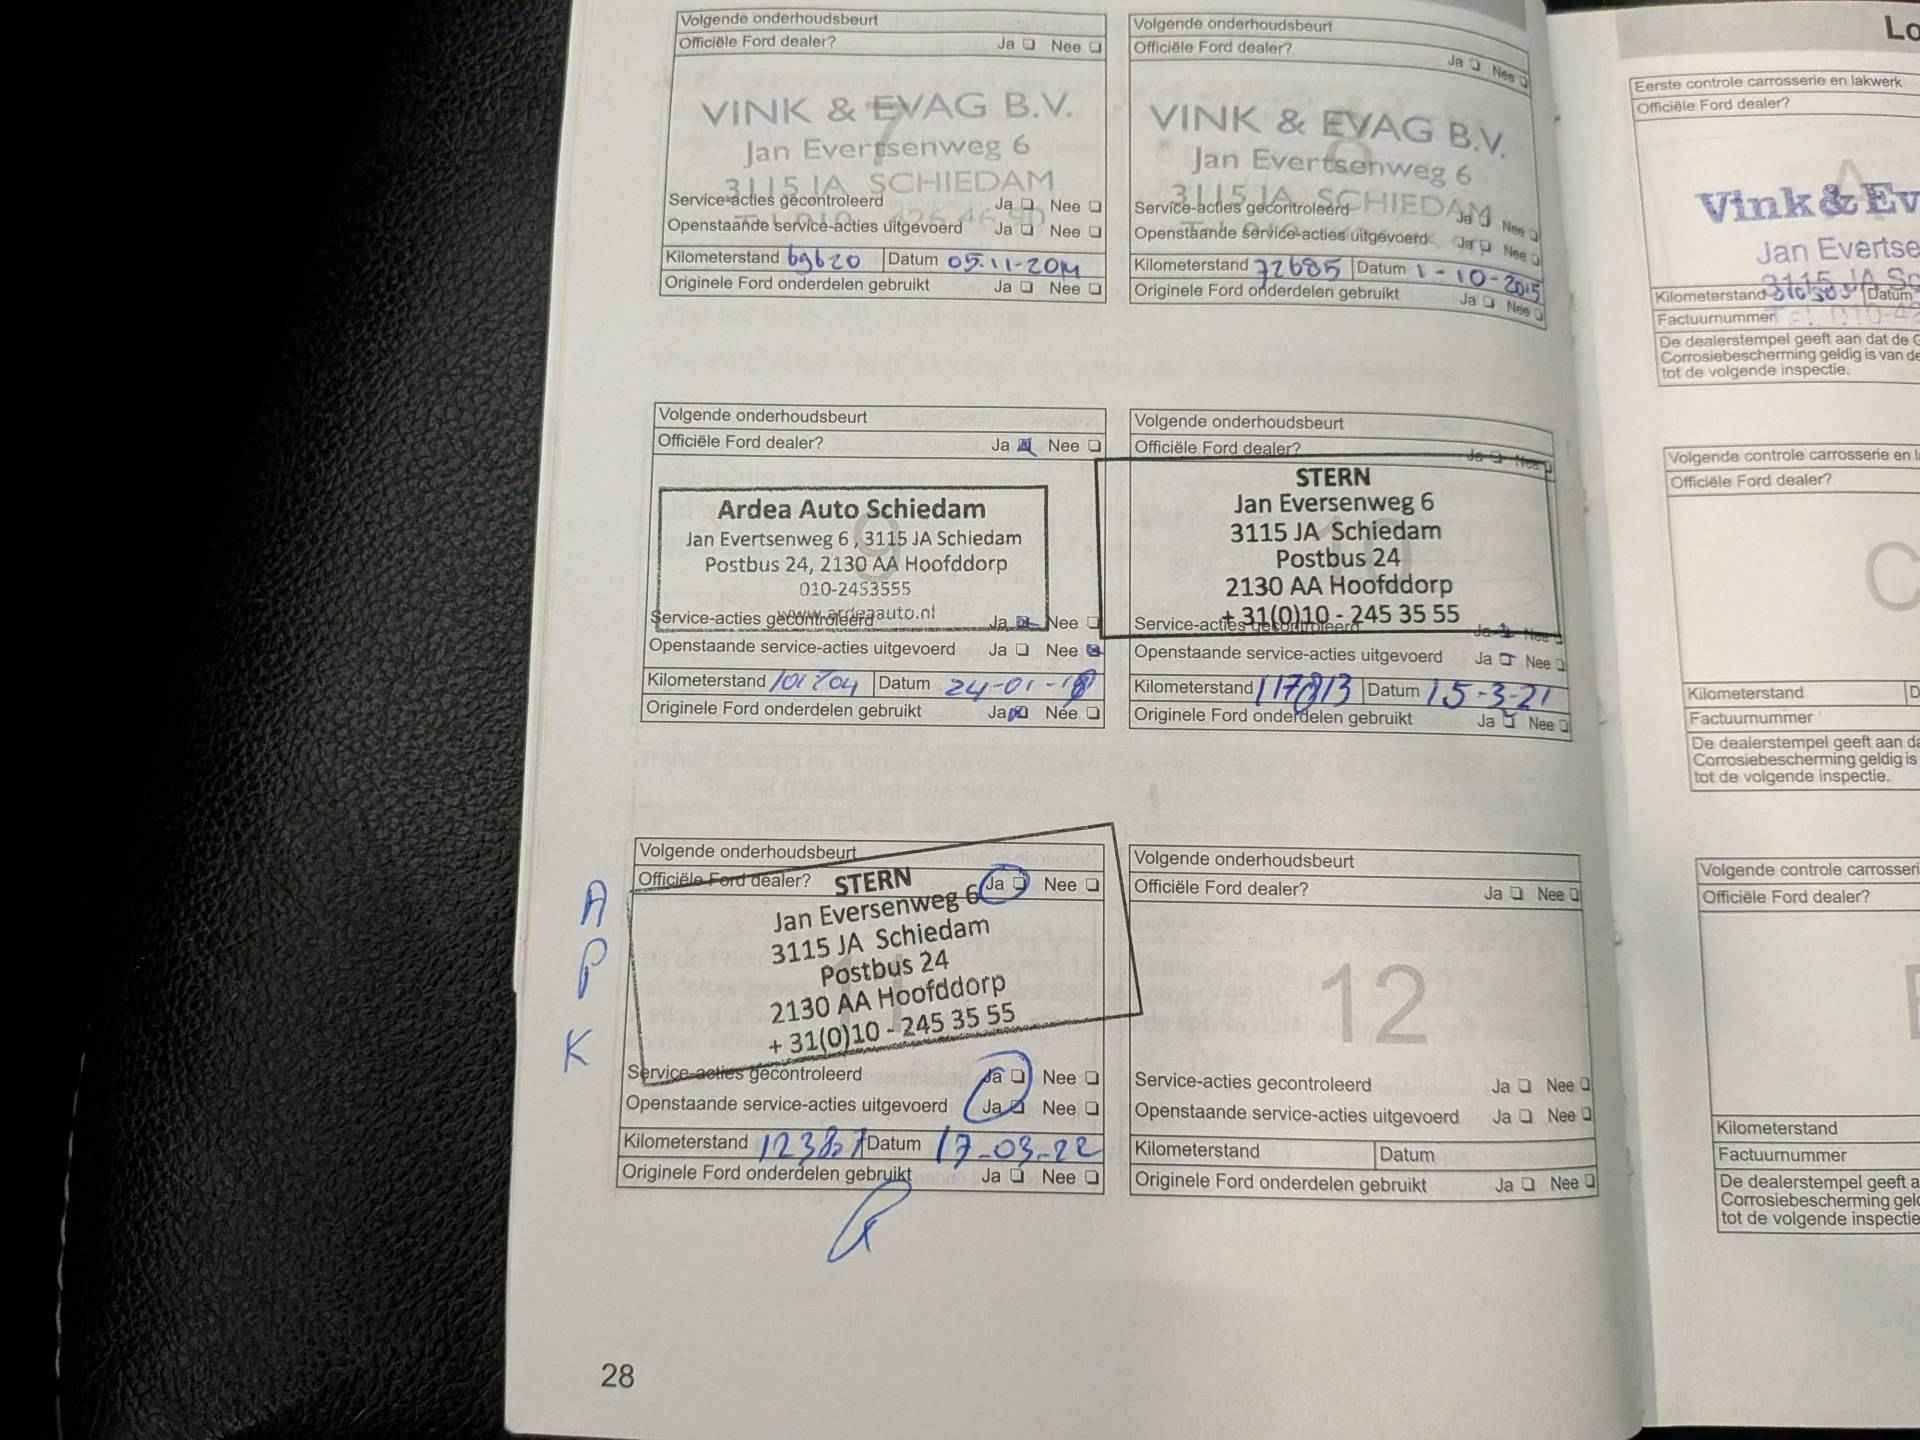 Volgende onderhoudsbeurt
Officiële Ford dealer? Ja Nee
VINK & EVAG B.V.
7
Jan Evertsenweg 6
3115 JA SCHIEDAM
Service-acties gecontroleerd Ja Nee
Openstaande service-acties uitgevoerd Ja Nee
Kilometerstand 69620 Datum 05.11-2014
Originele Ford onderdelen gebruikt Ja Nee
Volgende onderhoudsbeurt
Officiële Ford dealer? Ja Nee
VINK & EVAG B.V.
8
Jan Evertsenweg 6
3115 JA SCHIEDAM
Service-acties gecontroleerd Ja Nee
Openstaande service-acties uitgevoerd Ja Nee
Kilometerstand 72685 Datum 1-10-2015
Originele Ford onderdelen gebruikt Ja Nee
Volgende onderhoudsbeurt
Officiële Ford dealer? Ja Nee
Ardea Auto Schiedam
9
Jan Evertsenweg 6, 3115 JA Schiedam
Postbus 24, 2130 AA Hoofddorp
010-2453555
www.ardeaauto.nl
Service-acties gecontroleerd Ja Nee
Openstaande service-acties uitgevoerd Ja Nee
Kilometerstand 101704 Datum 24-01-18
Originele Ford onderdelen gebruikt Ja Nee
Volgende onderhoudsbeurt
Officiële Ford dealer? Ja Nee
STERN
Jan Eversenweg 6
3115 JA Schiedam
10
Postbus 24
2130 AA Hoofddorp
+ 31(0)10 - 245 35 55
Service-acties gecontroleerd Ja Nee
Openstaande service-acties uitgevoerd Ja Nee
Kilometerstand 117813 Datum 15-3-21
Originele Ford onderdelen gebruikt Ja Nee
A
P
K
Volgende onderhoudsbeurt
Officiële Ford dealer? Ja Nee
STERN
Jan Eversenweg 6
3115 JA Schiedam
Postbus 24
11
2130 AA Hoofddorp
+ 31(0)10 - 245 35 55
Service-acties gecontroleerd Ja Nee
Openstaande service-acties uitgevoerd Ja Nee
Kilometerstand Datum 17-03-22
Originele Ford onderdelen gebruikt Ja Nee
Volgende onderhoudsbeurt
Officiële Ford dealer? Ja Nee
12
Service-acties gecontroleerd Ja Nee
Openstaande service-acties uitgevoerd Ja Nee
Kilometerstand Datum
Originele Ford onderdelen gebruikt Ja Nee
28
Lo
Eerste controle carrosserie en lakwerk
Officiële Ford dealer?
A
Vink & Ev
Jan Evertse
3115 JA Sc
Kilometerstand Datum
Factuurnummer
De dealerstempel geeft aan dat de G
Corrosiebescherming geldig is van de
tot de volgende inspectie.
Volgende controle carrosserie en l
Officiële Ford dealer?
C
Kilometerstand D
Factuurnummer
De dealerstempel geeft aan da
Corrosiebescherming geldig is
tot de volgende inspectie.
Volgende controle carrosseri
Officiële Ford dealer?
Kilometerstand
Factuurnummer
De dealerstempel geeft a
Corrosiebescherming geld
tot de volgende inspectie